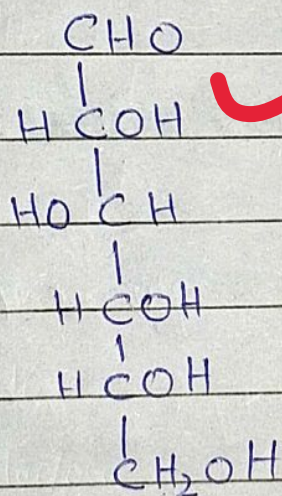 CHO
H COH
HO CH
H COH
H COH
CH₂OH